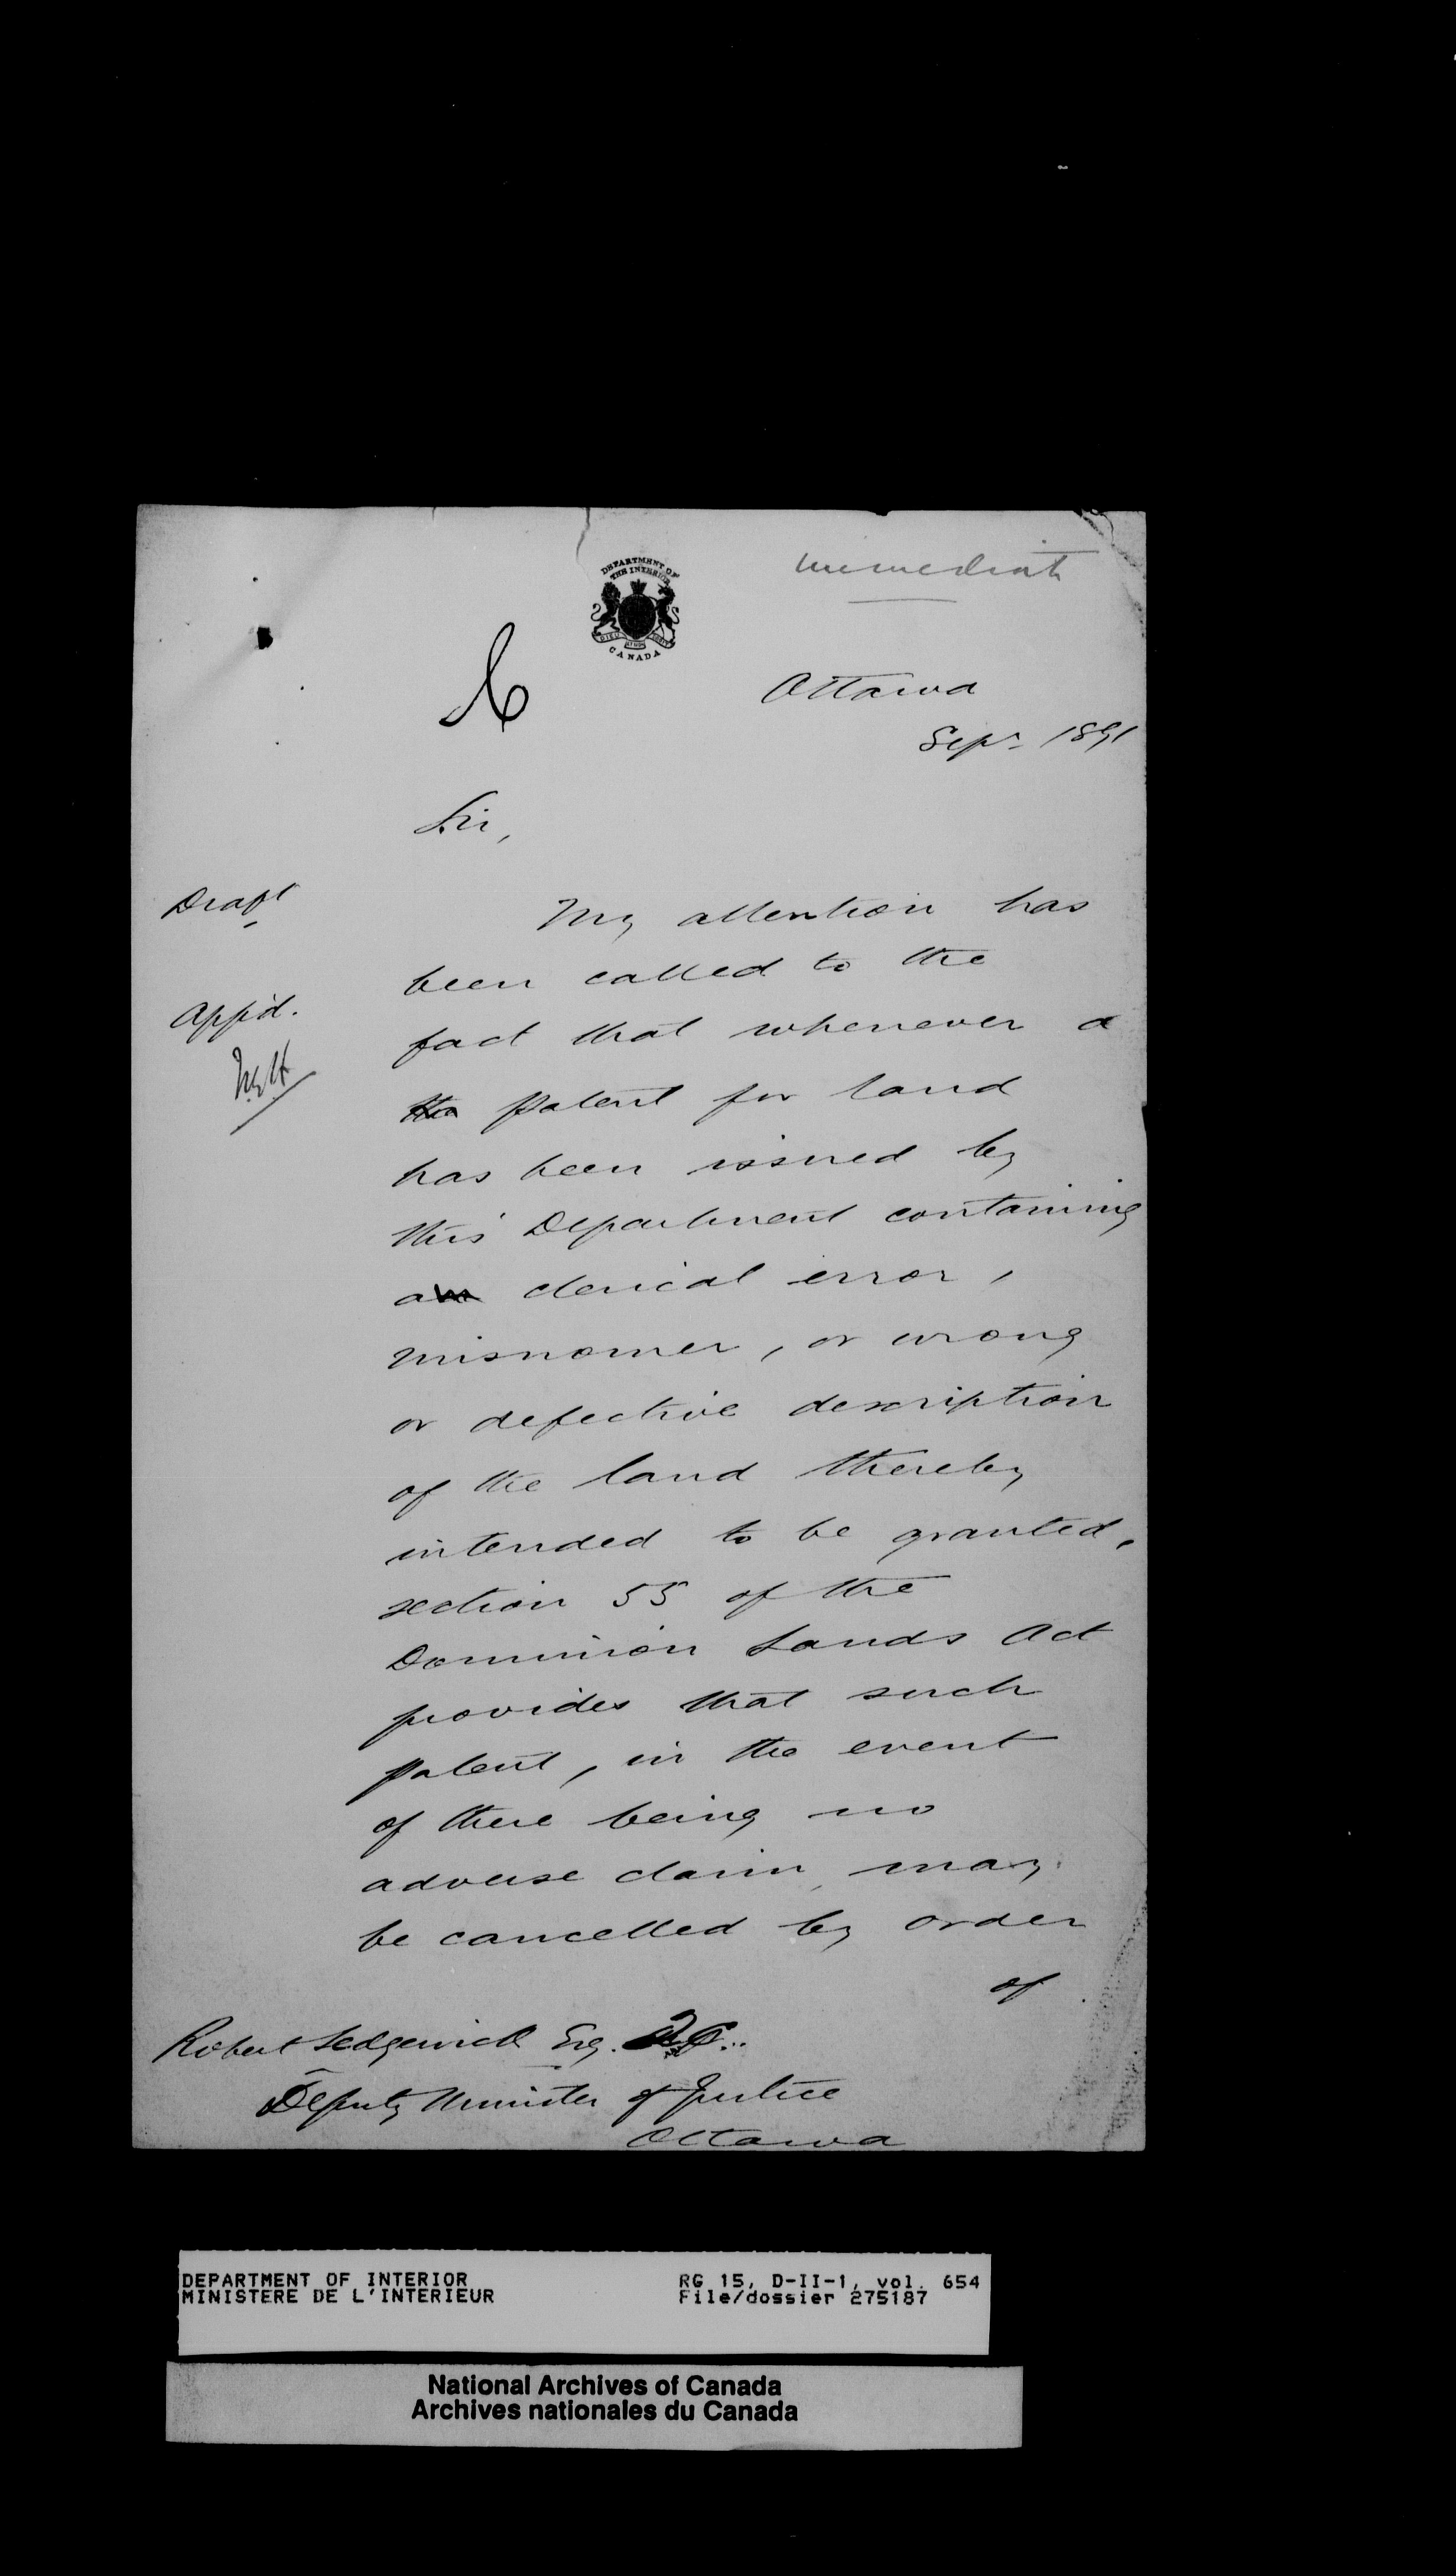 immediate
DEPARTMENT OF
THE INTERIOR
CANADA
Ottawa
Sepr 1891
Sir,
Draft
My attention has
been called to the
App'd.
fact that whenever a
the Patent for land
has been issued by
this Department containing
an clerical error,
misnomer, or wrong
or defective description
of the land thereby
intended to be granted,
section 55 of the
Dominion Lands Act
provides that such
Patent, in the event
of there being no
adverse claim, may
be cancelled by order
of
Robert Sedgewick Esq. Q.C.
Deputy Minister of Justice
Ottawa
DEPARTMENT OF INTERIOR RG 15, D-II-1, vol. 654
MINISTERE DE L'INTERIEUR File/dossier 275187
National Archives of Canada
Archives nationales du Canada